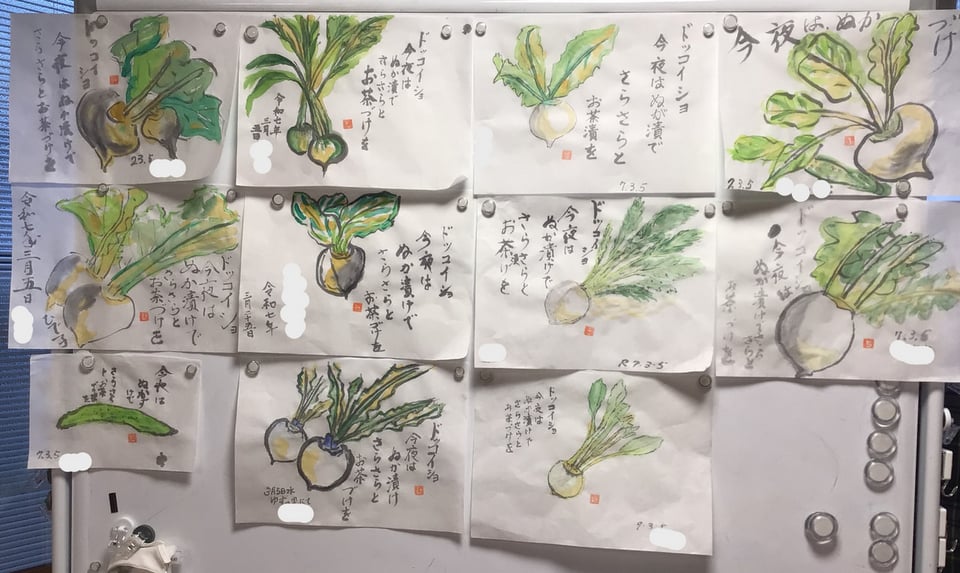 ドッコイショ
今夜はぬか漬けで
さらさらとお茶づけを
23.5
ドッコイショ
今夜は
ぬか漬で
さらさらと
お茶づけを
令和七年
三月
ドッコイショ
今夜はぬが漬で
さらさらと
お茶漬を
7.3.5
今夜は、ぬか
づけ
7.3.5
ドッコイショ
今夜は
ぬか漬けで
さらさらと
お茶づけを
令和七年三月五日
ドッコイショ
今夜は
ぬか漬けで
さらさらと
お茶づけを
令和七年
ドッコイショ
今夜は
ぬか漬けで
さらさらと
お茶づけを
R7.3.5
今夜は
ぬか漬け
さらさらと
お茶づけを
7.3.5
今夜は
ぬかづけ
7.3.5
ドッコイショ
今夜は
ぬか漬け
さらさらと
お茶づけを
3月5日水
ドッコイショ
今夜は
ぬか漬けで
さらさらと
お茶づけを
7.3.5